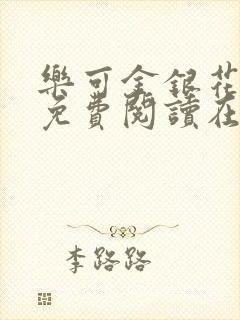 樂可金銀花
免費閱讀在
李路路